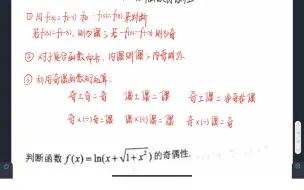 ① 用 f(x)=f(-x) 和 -f(x)=f(-x) 来判断
若 f(x)=f(-x), 则为偶; 若 -f(x)=f(-x) 则为奇
② 对于复合函数而言, 内偶则偶; 内奇则外
③ 利用奇偶函数的运算:
奇±奇=奇 偶±偶=偶 奇±偶=非奇非偶
奇×(÷)奇=偶 偶×(÷)偶=偶 奇×(÷)偶=奇
判断函数 f(x)=ln(x+√(1+x²)) 的奇偶性.